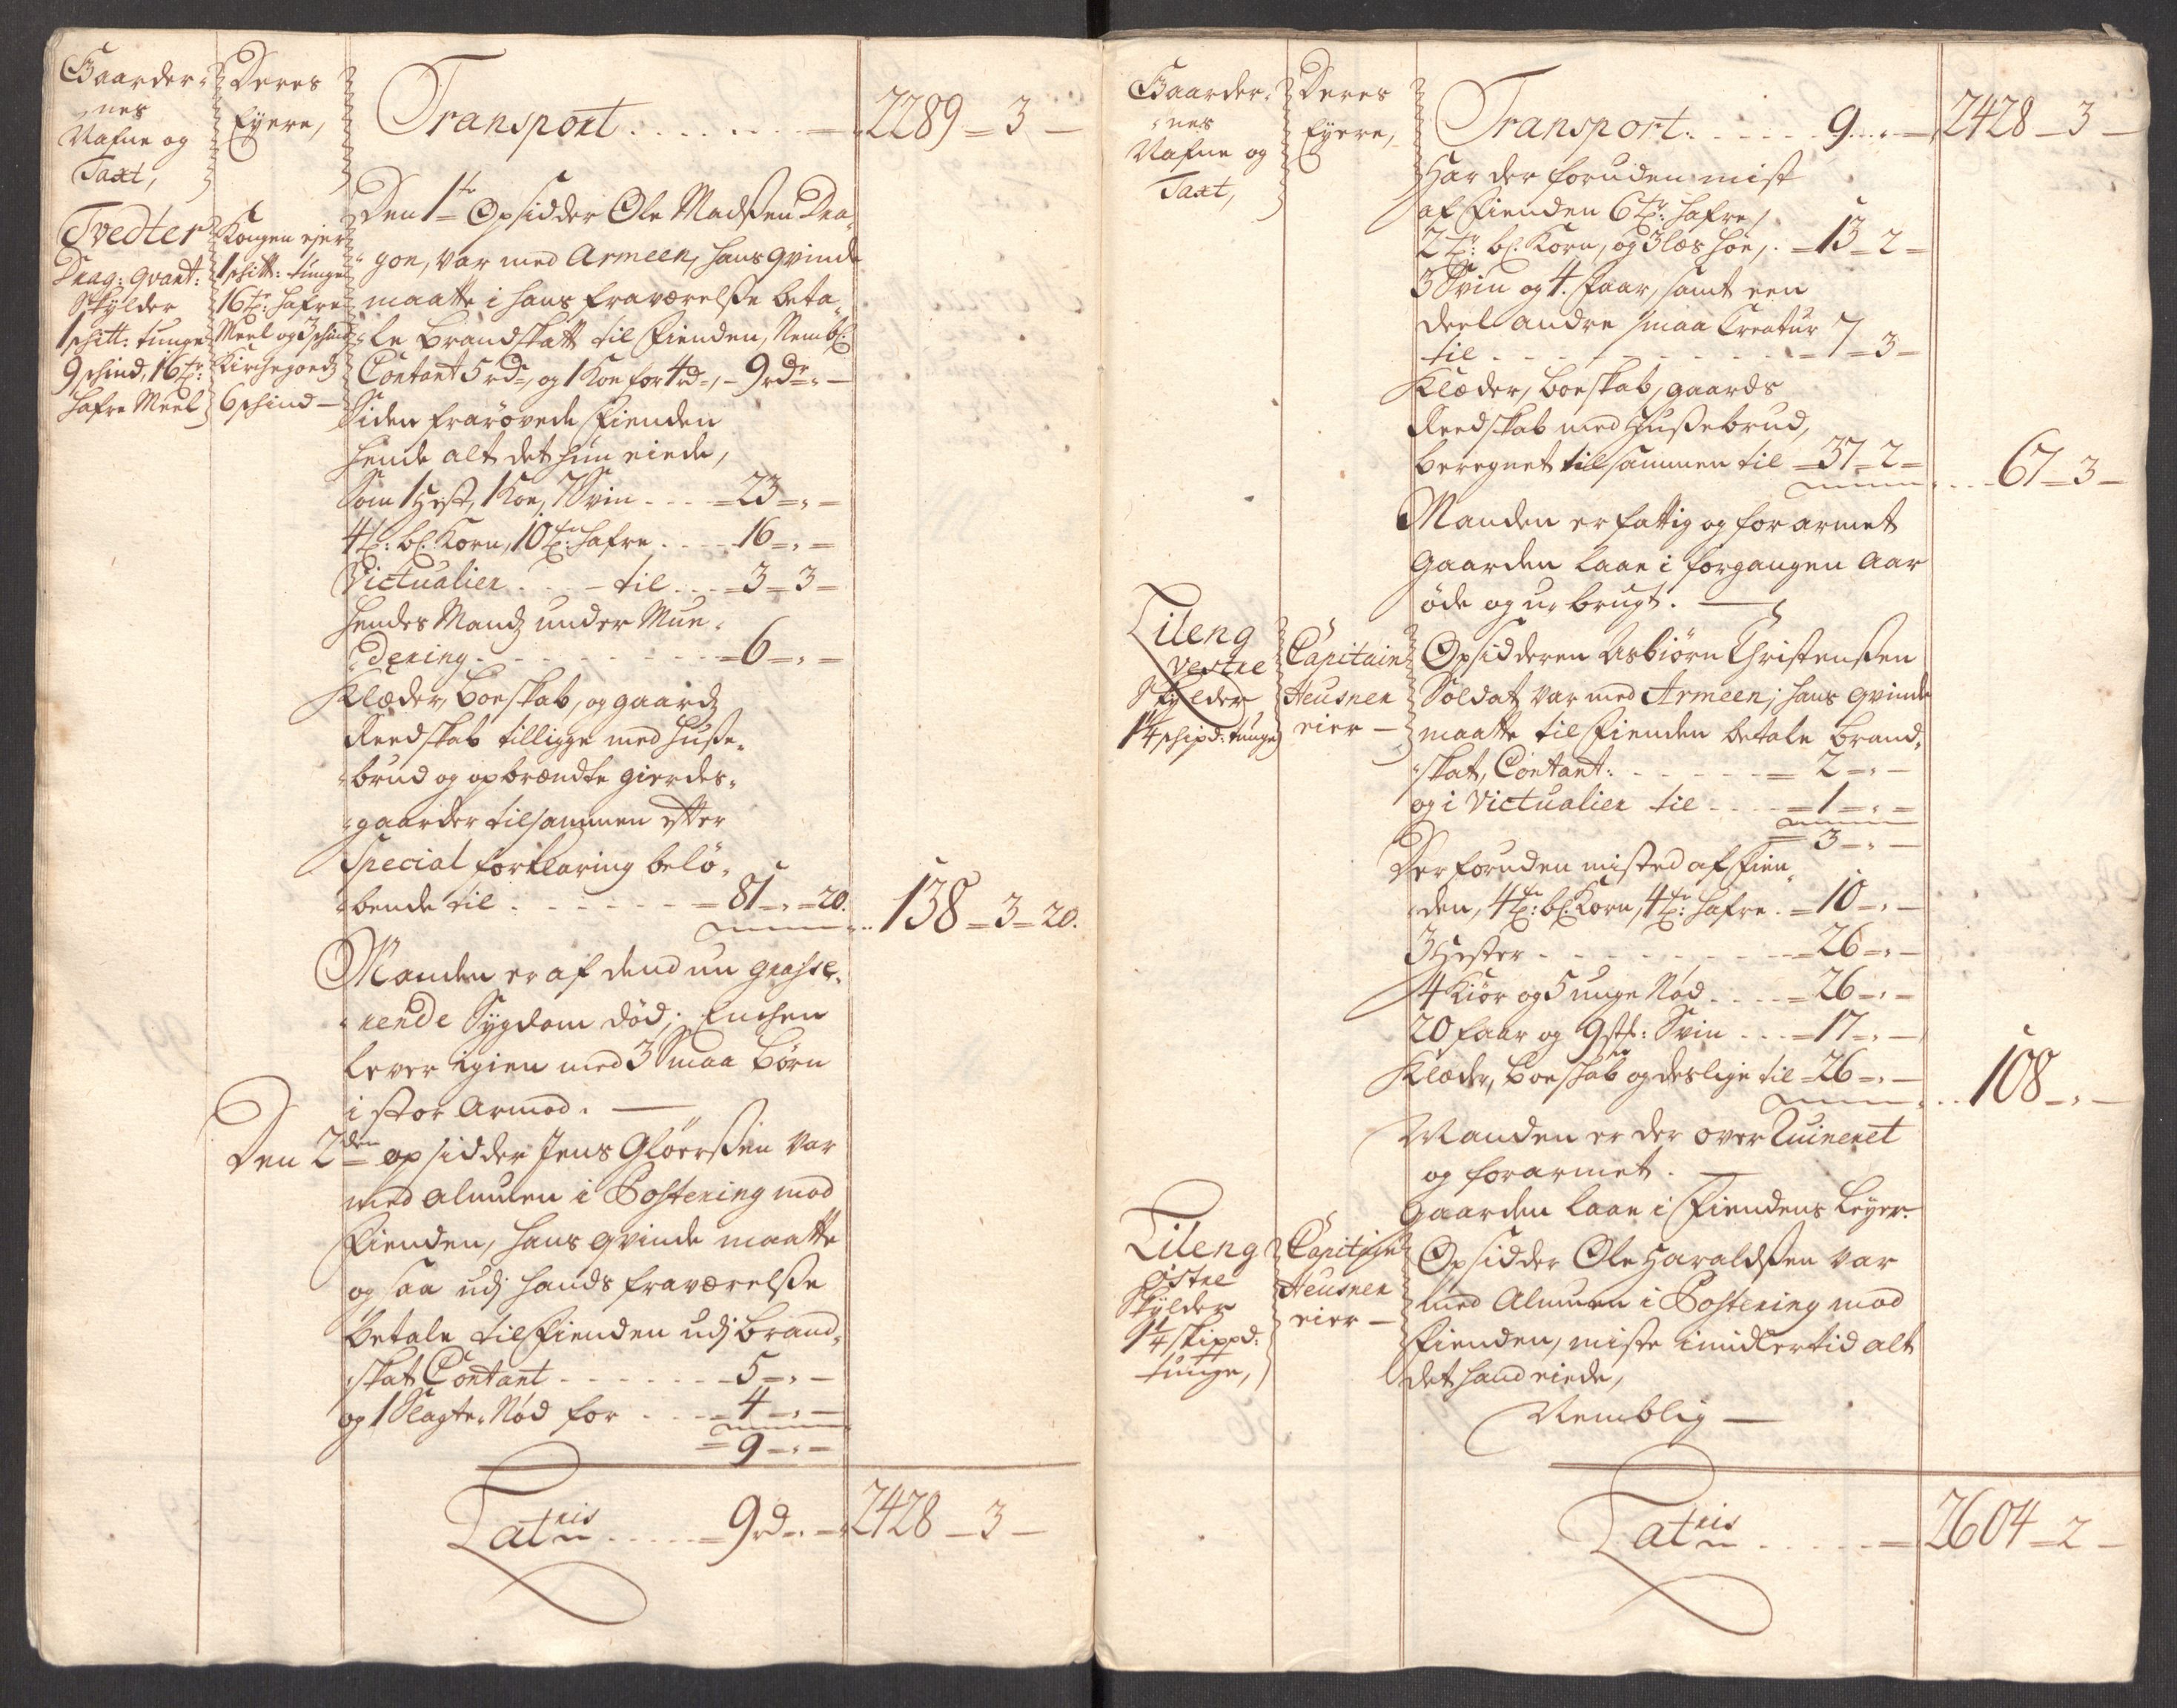 Gaarder-
nes
Nafne og
Taxt,
Deres
Eyere,
Transport . . . . . . . = 2289 = 3 —
Tvedter
Drag: qvart:
Skylder
1 schitt: tunge
9 schind, 16 tr:
hafre Meel
Kongen ejer
1 schitt: tunge
16 tr: hafre
Meel og 3 schind
Kirchegoedz
6 schind —
Den 1te Opsidder Ole Madsen Dra-
gon, var med Armeen, hans qvinde
maatte i hans fraværelsse beta-
le brandskatt til Fienden, Nembl:
Contant 5 rdr, og 1 Koe for 4 rd, – 9 rdr = —
Siden frarøvede Fienden
hende alt det hun eiede,
Som 1 Hest, 1 Koe, 7 Svin . . . = 23 = „ =
4 tr: bl: Korn, 10 tr: hafre . . . . 16 = „ =
Victualier . . . – til . . . = 3 = 3 =
Hendes Mandz under Mun-
dering . . . . . . . . . = 6 = „ =
Klæder, boeskab, og gaardz
Reedskab tilligge med Husse-
brud og opbrændte gierdes-
gaarder tilsammen efter
Special forklaring belø-
bende til . . . . . . . = 81 = „ = 20. . . . 138 = 3 = 20.
Manden er af dend nu grasse-
rende Sygdom død; Enchen
lever igien med 3 Smaa børn
i stor Armod. —
Den 2den opsidder Jens Gløersen var
med almuen i Postering mod
Fienden, hans qvinde maatte
og saa udj hands fraværelsse
betale til Fienden udj brand-
skat Contant . . . . . . . . 5 = „ —
og 1 Slagte-Nød for . . . . = 4 = „ —
= 9 = „ —
Lateris . . . . . = 9 rd = „ = 2428 — 3 —
Gaarder-
nes
Nafne og
Taxt,
Deres
Eyere,
Transport . . . . . . 9 . . „ = 2428 — 3 —
Har der foruden mist
af Fienden 6 tr: hafre,
2 tr: bl: Korn, og 3 læs høe, . = 13 = 2 =
3 Svin og 4. Faar, samt een
deel andre smaa Creatur
til . . . . . . . . . . . = 7 = 3 —
Klæder, boeskab, gaards
Reedskab med Hussebrud,
beregnet tilsammen til = 37 = 2 = . . . . 67 = 3 —
Manden er fattig og forarmet
Gaarden laae i forgangen Aar
øde og u-brugt. —
Lileng
Vestre
Skylder
1 1/4 schipd: tunge
Capitain
Heusner
eier —
Opsidderen Asbiørn Christensen
Soldat var med Armeen; hans qvinde
maatte til Fienden betale brand-
skat, Contant: . . . . . . = 2 = „ —
og i Victualier til . . . . = 1 = „ =
= 3 = „ —
Der foruden misted af Fien-
den, 4 tr: bl: Korn, 4 tr: hafre . = 10 = „ —
3 Hester . . . . . . . . . = 26 = „ —
4 Kiør og 5 unge Nød . . . . = 26 = „ =
20 faar og 9 stk: Svin . . . = 17 = „ —
Klæder, boeskab og deslige til = 26 = „ — . . . 108 = „ —
Manden er der over Ruineret
og forarmet. —
Gaarden laae i Fiendens Leyer.
Lileng
Østre
Skylder
1 1/4 skippd:
tunge,
Capitain
Heusner
eier —
Opsidder Ole Haraldsen var
med Almuen i Postering mod
Fienden, miste imidlertid alt
det hand eiede,
Nemblig —
Lateris . . . . . . = 2604 = 2 —